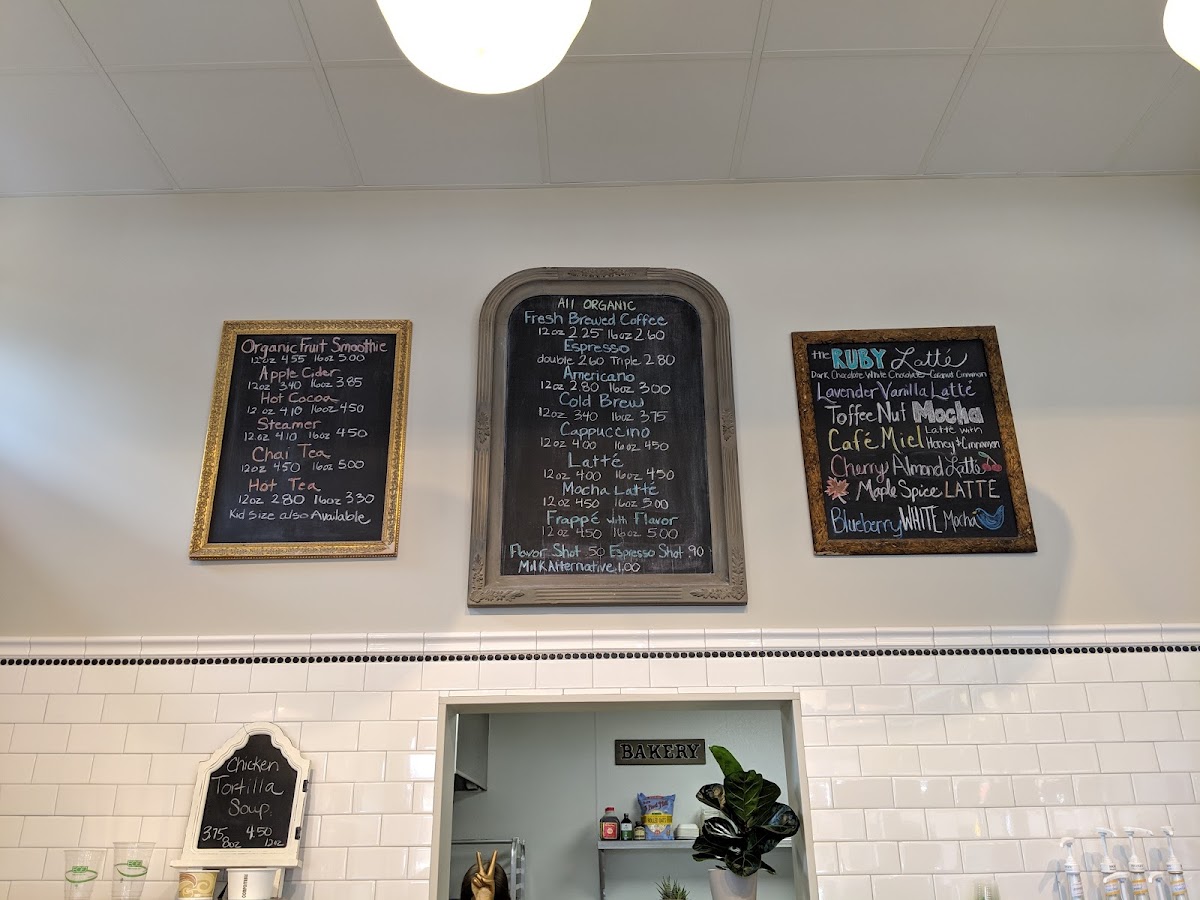 Organic Fruit Smoothie
12oz 4.55 16oz 5.00
Apple Cider
12oz 3.40 16oz 3.85
Hot Cocoa
12oz 4.10 16oz 4.50
Steamer
12oz 4.10 16oz 4.50
Chai Tea
12oz 4.50 16oz 5.00
Hot Tea
12oz 2.80 16oz 3.30
Kid Size also Available
All ORGANIC
Fresh Brewed Coffee
12oz 2.25 16oz 2.60
Espresso
double 2.60 Triple 2.80
Americano
12oz 2.80 16oz 3.00
Cold Brew
12oz 3.40 16oz 3.75
Cappuccino
12oz 4.00 16oz 4.50
Latté
12oz 4.00 16oz 4.50
Mocha Latté
12oz 4.50 16oz 5.00
Frappé with Flavor
12oz 4.50 16oz 5.00
Flavor Shot .50 Espresso Shot .90
Milk Alternative 1.00
the RUBY Latté
Dark Chocolate White Chocolate Coconut Cinnamon
Lavender Vanilla Latté
Toffee Nut Mocha
Café Miel Latte with Honey & Cinnamon
Cherry Almond Latté
Maple Spice LATTE
Blueberry WHITE Mocha
BAKERY
Chicken
Tortilla
Soup
3.75 4.50
8oz 12oz